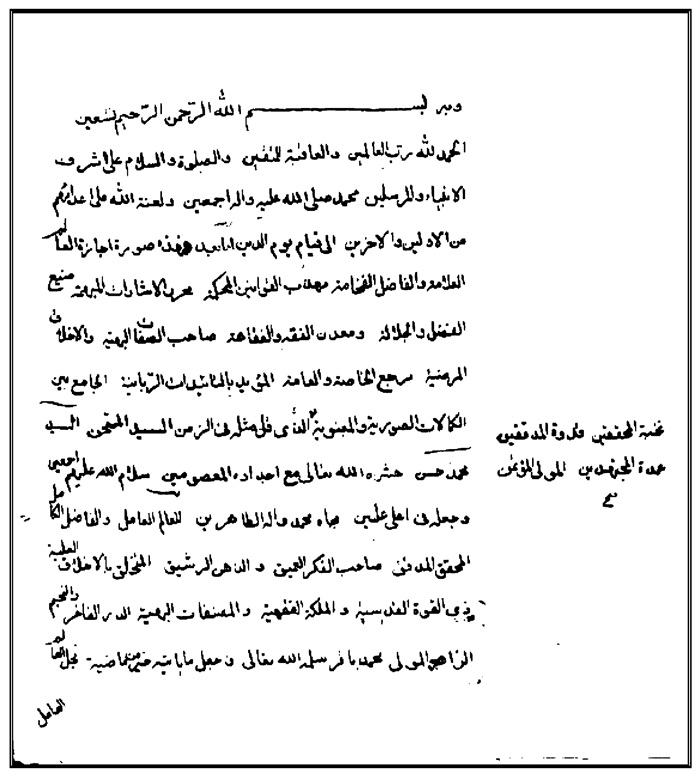 وبه بسم الله الرحمن الرحيم نستعين
الحمد لله رب العالمين والعاقبة للمتقين والصلوة والسلام على اشرف
الانبياء والمرسلين محمد صلى الله عليه واله اجمعين ولعنة الله على اعدائهم
من الاولين والاخرين الى قيام يوم الدين هذه صورة اجازة العالم
العلامة والفاضل الفهامة مهذب القوانين المحكمة محرر الاشارات المبهمة منبع
الفضل والجلالة ومعدن الفقه والفقاهة صاحب الصفات البهية والاخلاق
المرضية مرجع الخاصة والعامة المؤيد بالتائيدات الربانية الجامع بين
الكمالات الصورية والمعنوية الذي قل مثله في الزمن السيد الممتحن السيد
محمد حسن حشره الله تعالى مع اجداده المعصومين سلام الله عليهم اجمعين
وجعله في اعلى عليين بجاه محمد واله الطاهرين للعالم العامل والفاضل الكامل
المحقق المدقق صاحب الفكر العميق والذهن الرشيق المتخلق بالاخلاق العلية
ذي القوة القدسية والملكة الفقهية والمصنفات البهية الدر الفاخر والنجم
الزاهر المولى محمد باقر سلمه الله تعالى وجعل ما ياتيه خير من ماضيه نجل العالم
العامل
نخبة المحققين قدوة المدققين
عمدة المجتهدين المولى المؤتمن